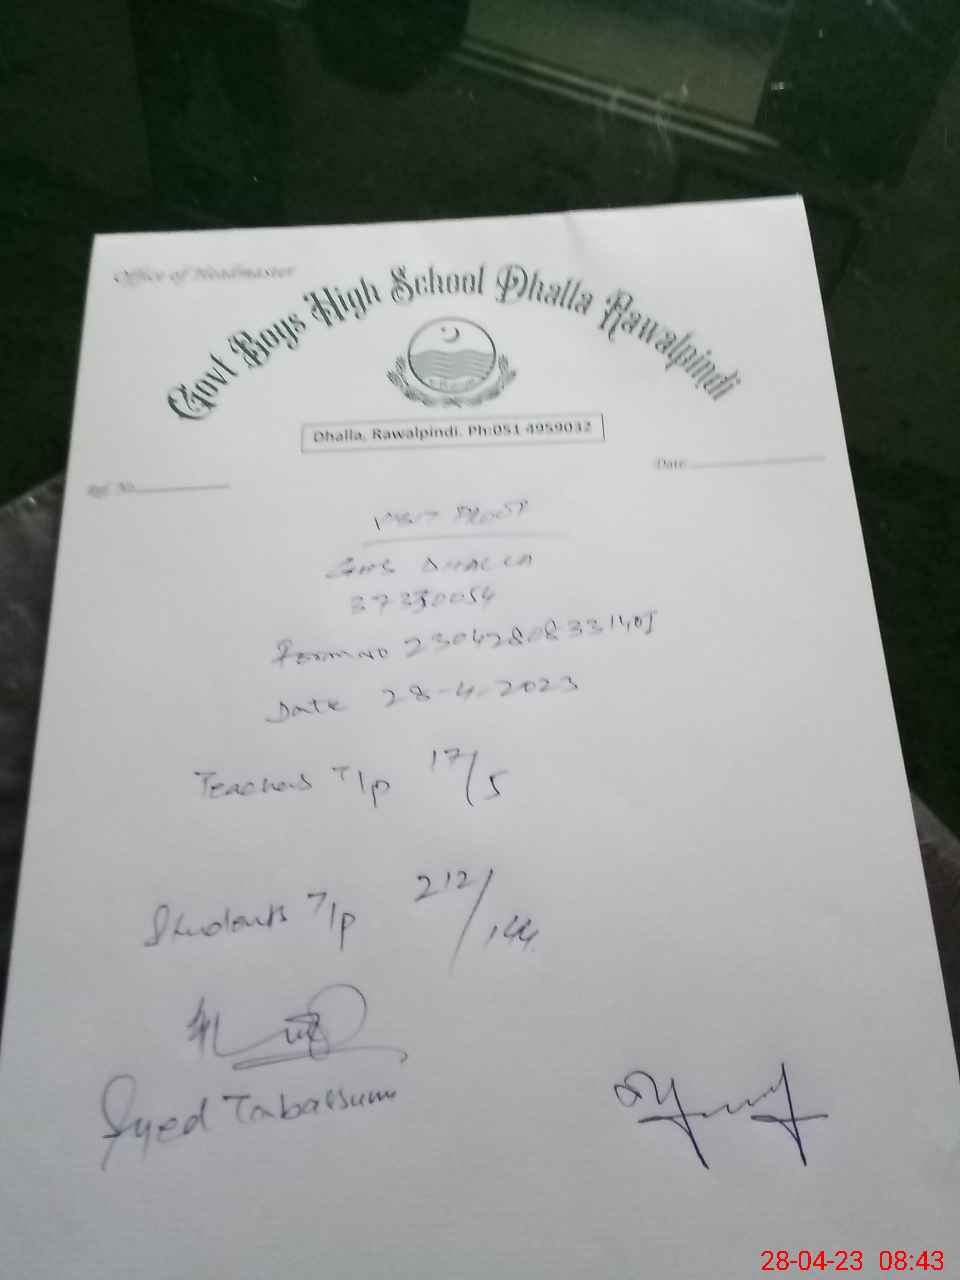 Office of Headmaster
Govt Boys High School Dhalla Rawalpindi
Dhalla, Rawalpindi. Ph:051 4959032
Ref. No.
Date
Visit Proof
GHS DHALLA
37330054
Form no 23042808331405
Date 28-4-2023
Teachers T/p 17/5
Students T/p 212/144
Syed Tabassum
28-04-23 08:43